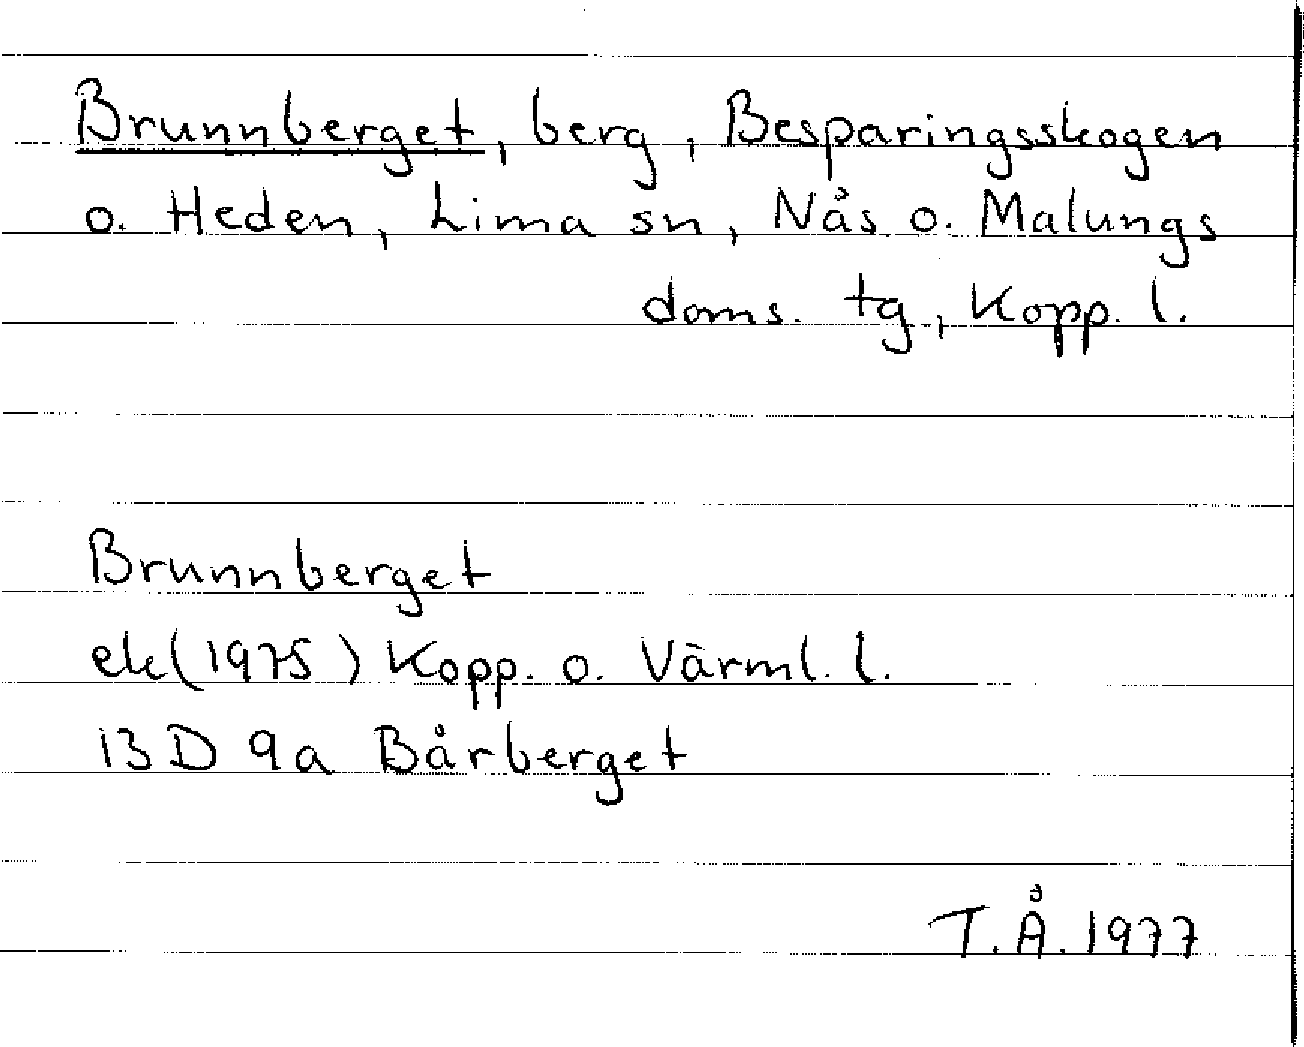 Brunnberget, berg, Besparingsskogen
o. Heden, Lima sn, Nås o. Malungs
doms. tg, Kopp. l.
Brunnberget
ek (1975) Kopp. o. Värml. l.
13 D 9a Bårberget
T.Å. 1977